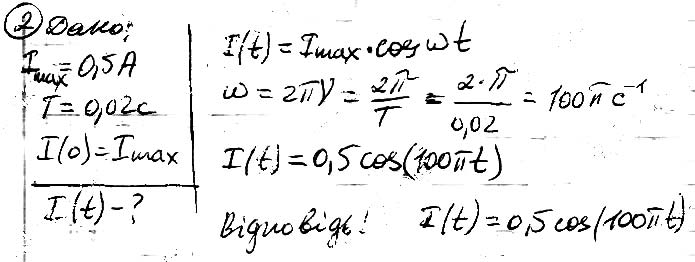 ② Дано:
I_max = 0,5 А
T = 0,02 с
I(0) = I_max
I(t) - ?
I(t) = I_max · cos ωt
ω = 2πν = 2π/T = 2·π/0,02 = 100π с⁻¹
I(t) = 0,5 cos(100πt)
Відповідь! I(t) = 0,5 cos(100πt)